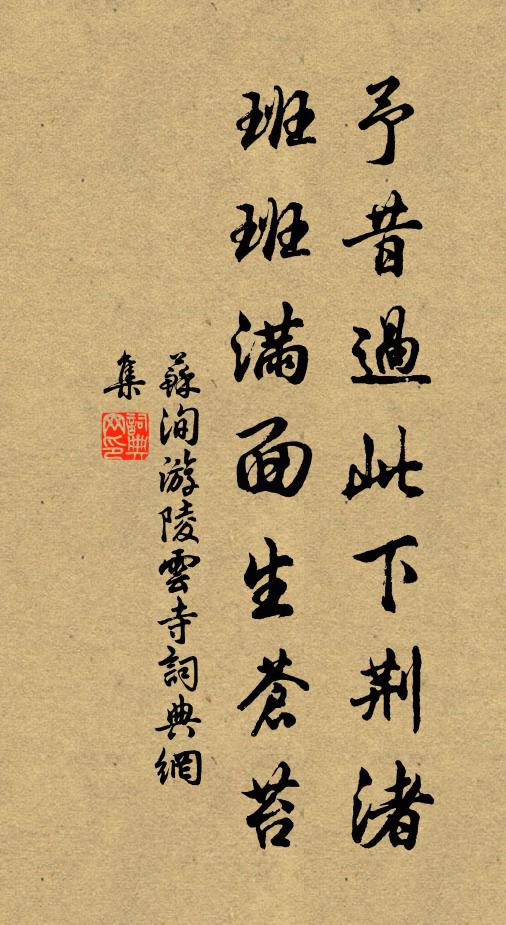 予昔過此下荆渚
班班滿面生蒼苔
蘇洵游陵雲寺詞典網
集
詞典網印